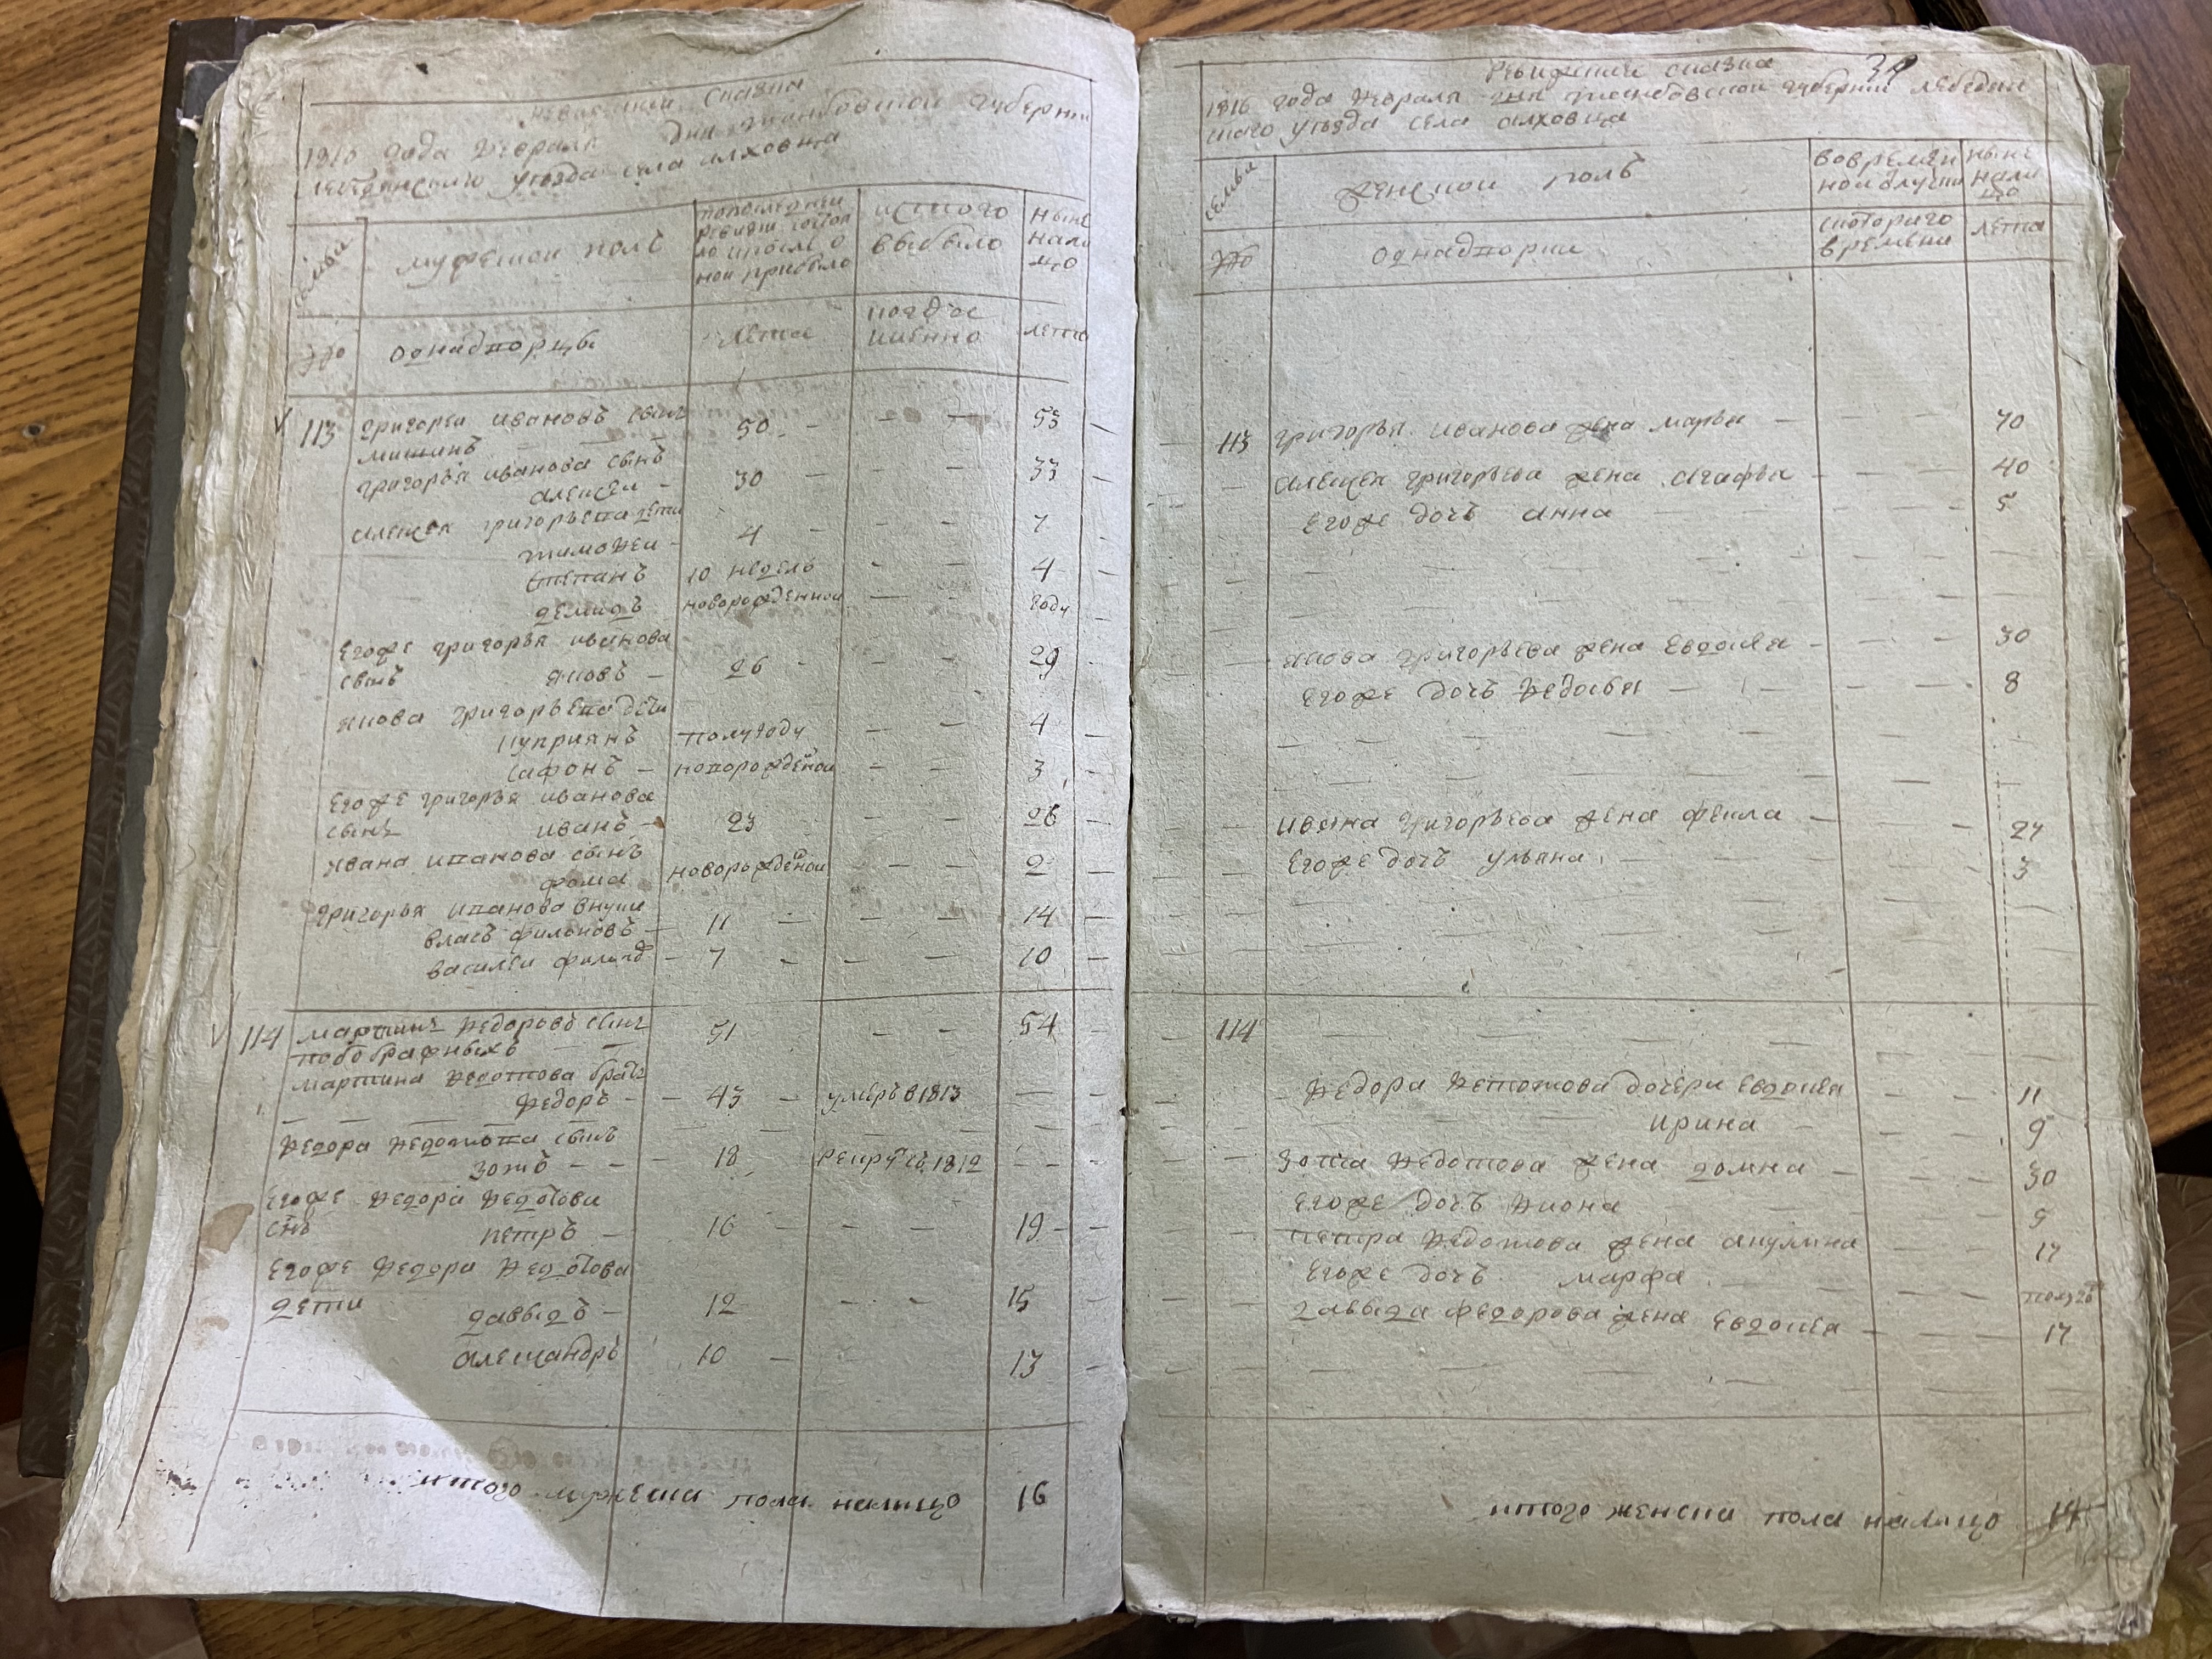 Ревижская сказка
1816 года февраля дня тамбовской губернии
лебедянского уезда села ольховца
семьи
мужеской полъ
попоследней
ревизии состоя
ло и после о
ной прибыло
истого
выбыло
ныне
нали
цо
№
однадворцы
лета
когда
имянно
лета
113 григорей ивановъ сынъ 50 - - - 53
мишинъ
григорья иванова сынъ
алексеи - 30 - - - 33
алексея григорьева дети
тимофеи - 4 - - - 7
степанъ 10 недель - - 4
демидъ новорожденной - - году
егоже григорья иванова
сынъ яковъ - 26 - - - 29
якова григорьева дети
куприянъ полугоду - - 4
сафонъ - новорожденой - - 3
егоже григорья иванова
сынъ иванъ - 23 - - 26
ивана иванова сынъ
фома новорожденой - - 2
григорья иванова внуки
власъ филоновъ - 11 - - - 14
василеи - 7 - - - 10
114 мартинъ федоровъ сынъ 51 - - 54
мартина федотова братъ
федоръ - - 43 - умеръ в 1813 - -
федора федотова сынъ
зотъ - - - 18 1812 - - -
егоже федора федотова
сынъ петръ - 16 - - - 19 -
егоже федора федотова
дети давыдъ - 12 - - 15
александръ 10 - - 13
итого мужеска пола налицо 16
Ревижская сказка
1816 года февраля дня тамбовской губернии лебедян
скаго уезда села ольховца
семьи
женской полъ
вовременн
ной отлучки
ныне
нали
цо
№
однадворки
скоторого
времяни
лета
113 григорья иванова жена марья - 70
алексея григорьева жена агафья - 40
егоже дочь анна 5
якова григорьева жена евдокия - 30
егоже дочь федосья - - 8
ивана григорьева жена фекла - - 27
егоже дочь ульяна - 3
114
федора федотова дочери евдокия 11
ирина 9
зота федотова жена домна - 30
егоже дочь 5
петра федотова жена акулина 17
егоже дочь марфа
давыда федорова жена евдокия - 17
итого женска пола налицо 14